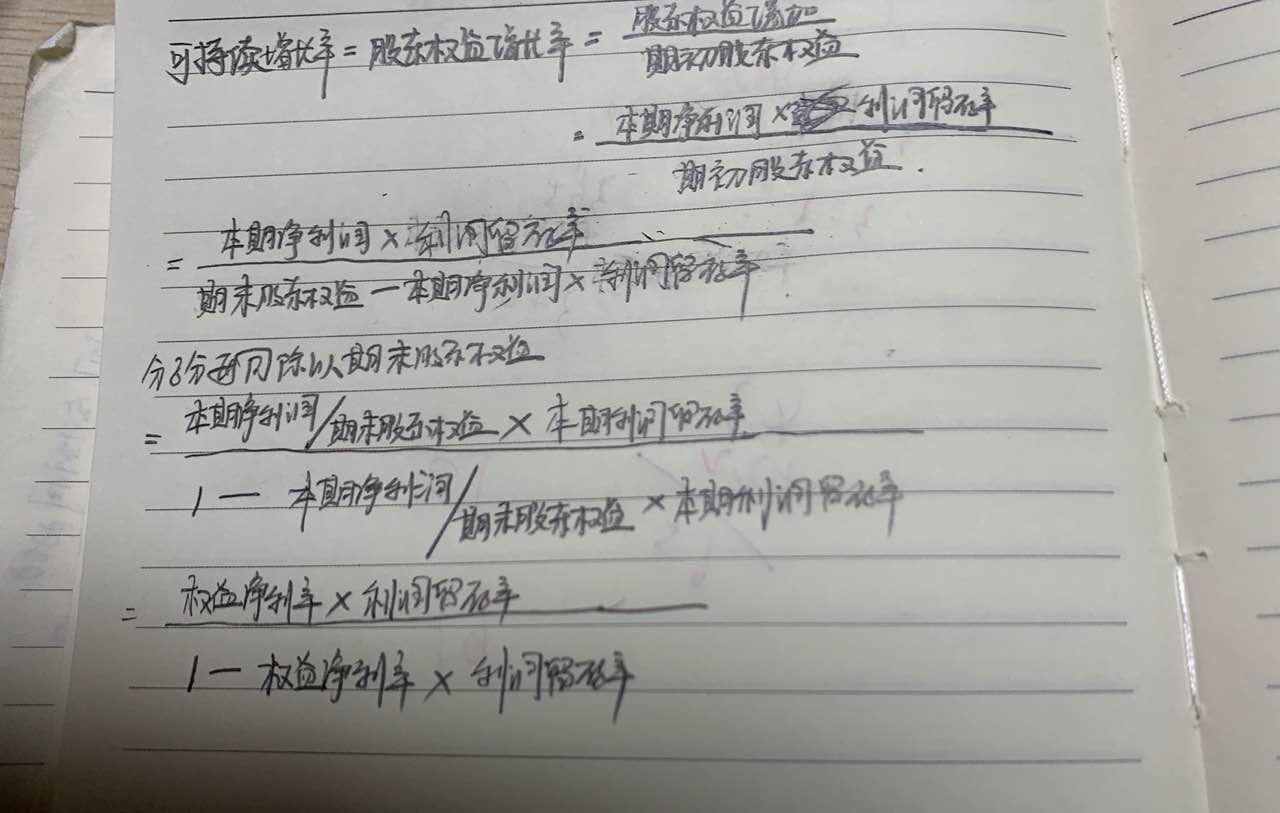 可持续增长率 = 股东权益增长率 = 股东权益增加
期初股东权益
= 本期净利润 × 利润留存率
期初股东权益.
= 本期净利润 × 利润留存率
期末股东权益 — 本期净利润 × 利润留存率
分子分母同除以期末股东权益
= 本期净利润/期末股东权益 × 本期利润留存率
1 — 本期净利润/期末股东权益 × 本期利润留存率
= 权益净利率 × 利润留存率
1 — 权益净利率 × 利润留存率